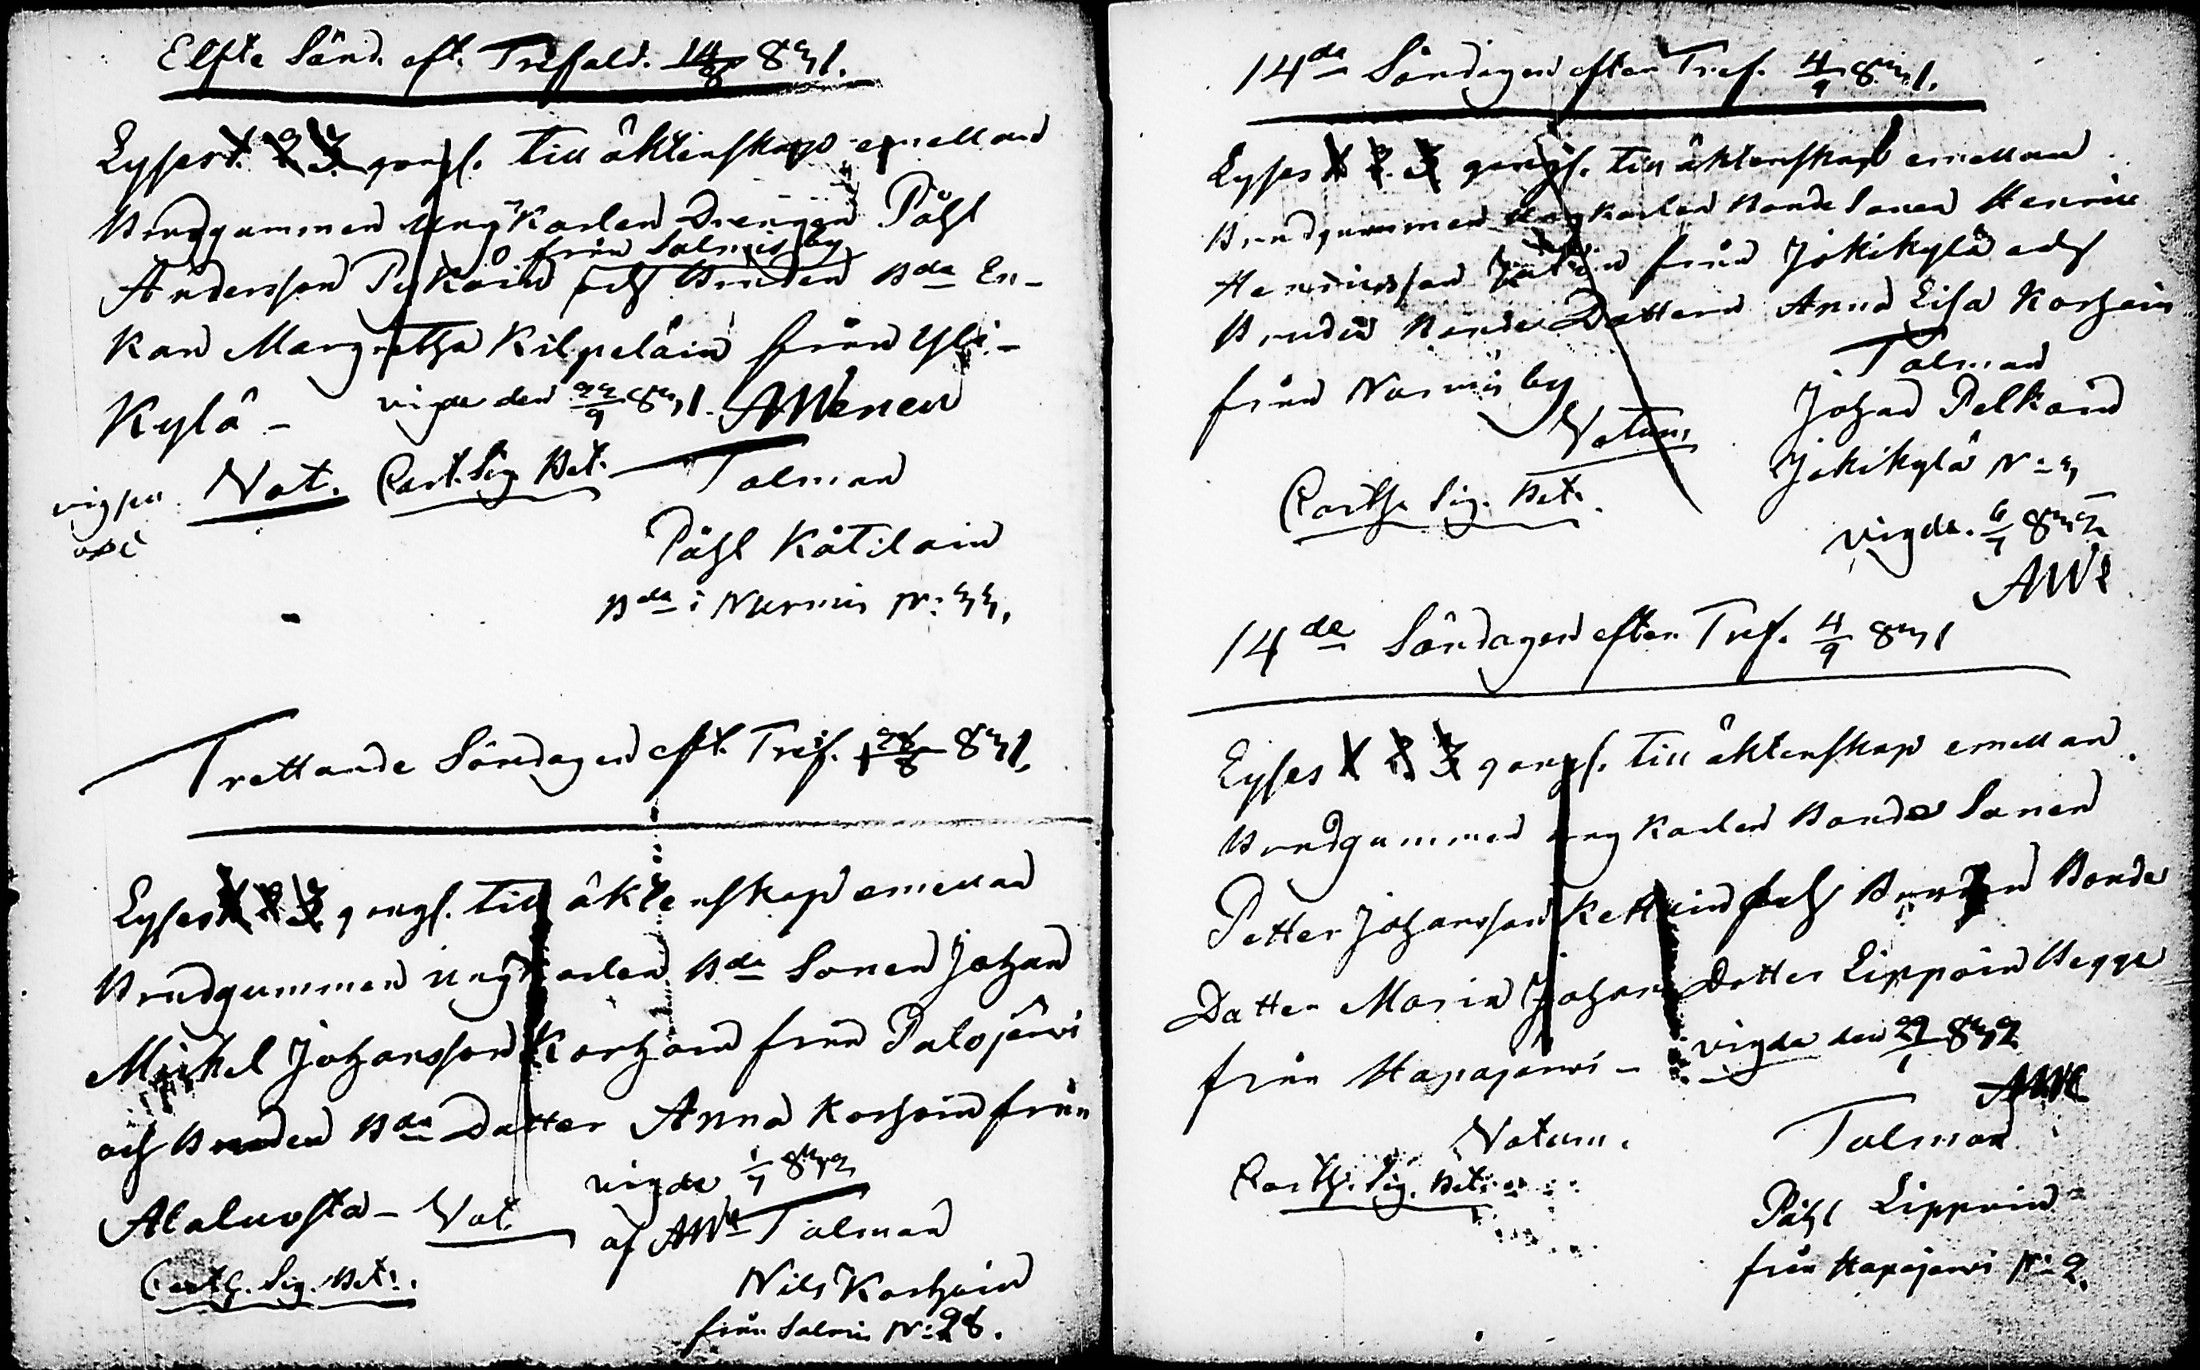 Elfte Sönd. eft. Trefald. 14/8 831.
Lyses 1. 2. 3. gongs. till äktenskap emellan
Brudgummen ungkarlen Drengen Påhl
från Salmis by
Andersson och Bruden Bde En-
kan Margretha Kilpeläin från Yli-
kylä - vigde den 9 831. AWenen
vigsen Not. Cert. Sig. Bet. Talman
Påhl Kåtilain
Bde i Nurmis N: 33.
Trettande Söndagen eft. Tref. 28/8 831.
Lyses 1 2 3 gongs. till äktenskap emellan
Brudgummen ungkarlen Bde Sonen Johan
Mickel Johansson Korhoin från Palojärvi
och Bruden Bde Datter Anna Korhoin från
Alaluosta - Not. vigde 1/1 832
af AWn Talman
Certh. Sig. Bet. Nils Korhoin
från Salmis N: 28.
14de Söndagen efter Tref. 4/9 831.
Lyses 1 2. 3 gongs. till äktenskap emellan
Brudgummen ungkarlen Bonde Sonen Henric
Henricsson från Jokikylä och
Bruden Bonde Dottern Anna Lisa Korhoin
från Nurmis by Talman
Notum Johan Pelkoin
Certh. Sig. Bet. Jokikylä N: 3
vigde. 6/1 832
AWn
14de Söndagen efter Tref. 4/9 831
Lyses 1 2 3 gongs. till äktenskap emellan
Brudgummen ungkarlen Bonde Sonen
Petter Johansson och Bruden Bonde
Datter Maria Johans Dotter Lippoin Begge
från Hapajervi - vigde den 29/1 832
AWn
Notum. Talman
Certh. Sig. Bet. Påhl Lippoin
från Hapajervi N: 2.